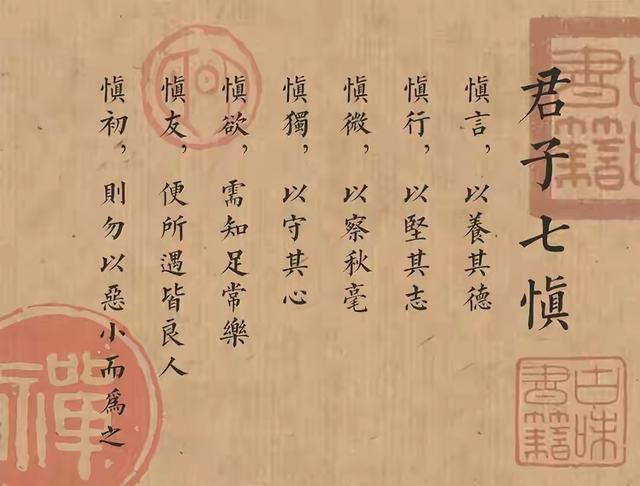 君子七慎
慎言，以養其德
慎行，以堅其志
慎微，以察秋毫
慎獨，以守其心
慎欲，需知足常樂
慎友，便所遇皆良人
慎初，則勿以惡小而為之
古味書籍
古味書籍
禪